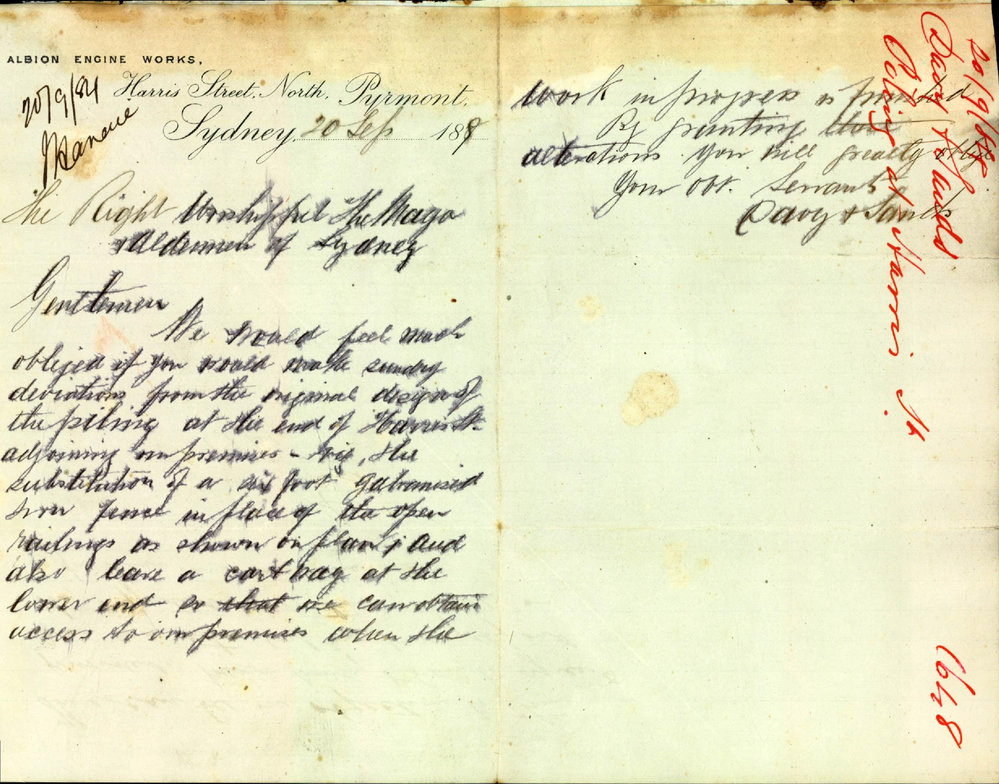 ALBION ENGINE WORKS,
Harris Street, North, Pyrmont,
Sydney, 20 Sep 188
20/9/84
The Right Worshipful The Mayo
& Aldermen of Sydney
Gentlemen
We would feel much
obliged if you would make sundry
deviations from the original design of
the piling at the end of Harris St
adjoining our premises - viz, the
substitution of a six foot galvanised
Iron fence in place of the open
railings as shown on plan, and
also leave a cart way at the
lower end so that we can obtain
access to our premises when the
work in progress is finished
By granting these
alterations you will greatly oblige
Your Obt. Servants
Davy & Sands
20/9/84
Davy & Sands
Piling at Harris St
1648